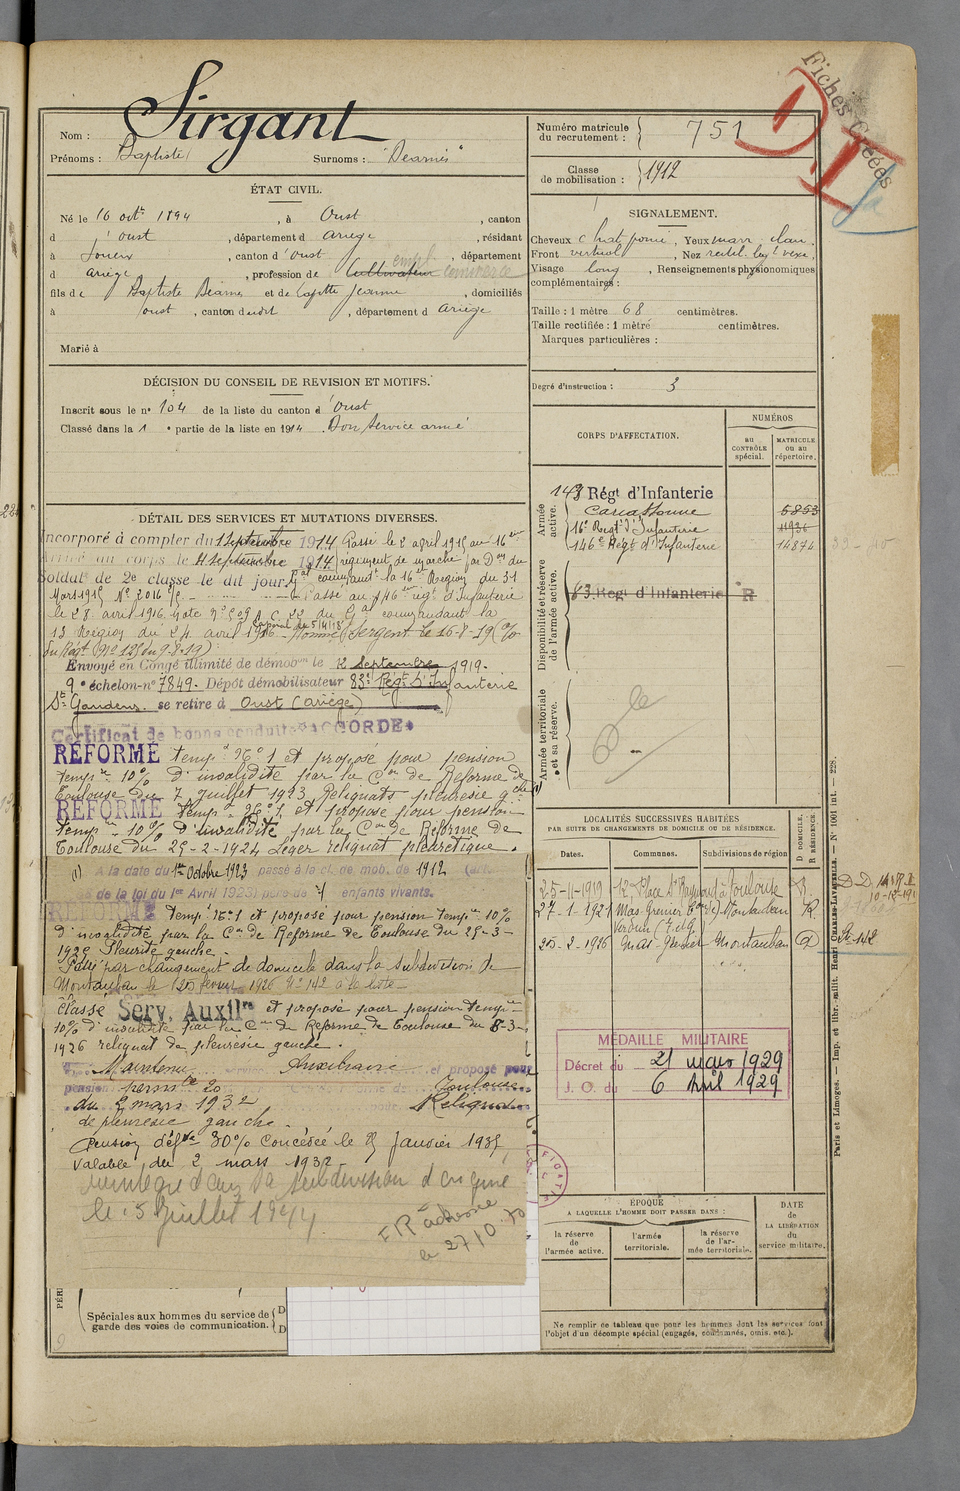 Fiches Créées
Sirgant
Nom :
Prénoms : Baptiste Surnoms : "Dearnis"
Numéro matricule du recrutement : 751
Classe de mobilisation : 1912
ÉTAT CIVIL.
Né le 16 octe 1894, à Oust, canton
d'oust, département d Ariège, résidant
à Soueix, canton d'Oust, département
d Ariège, profession de Cultivateur empl. commerce
fils de Baptiste Dearnis et de Lafitte Jeanne, domiciliés
à oust, canton dudit, département d Ariège
Marié à
SIGNALEMENT.
Cheveux chat foncé, Yeux marr. clair.
Front vertical, Nez rectil. leg. vexe.
Visage long, Renseignements physionomiques
complémentaires :
Taille : 1 mètre 68 centimètres.
Taille rectifiée : 1 mètre centimètres.
Marques particulières :
Degré d'instruction : 3
DÉCISION DU CONSEIL DE REVISION ET MOTIFS.
Inscrit sous le n° 104 de la liste du canton d'Oust
Classé dans la 1e partie de la liste en 1914. Bon Service armé
CORPS D'AFFECTATION.
NUMÉROS
AU CONTRÔLE spécial.
MATRICULE ou au répertoire.
Armée active.
143 Régt d'Infanterie
Carcassonne 6853
16e Regt d'Infanterie 11936
146e Régt d'Infanterie 14874
Disponibilité et réserve de l'armée active.
83. Regt d'Infanterie R
Armée territoriale et sa réserve.
DÉTAIL DES SERVICES ET MUTATIONS DIVERSES.
Incorporé à compter du 1 Septembre 1914 Passé le 2 avril 1915 au 16ème
Arrivé au corps le 4 Septembre 1914 régiment de marche par Don du
Soldat de 2e classe le dit jour. Gal commandt la 16e Région du 31
Mars 1915 No 2016 Passé au 146ème regt d'Infanterie
le 28 avril 1916. Note No 509 du Gal commandant la
13 Région du 24 avril 1916. Caporal du 5/4/18 Nommé Sergent le 16-8-19 (o/
du Régt No 125 du 9-8-19)
Envoyé en Congé illimité de démobon le 2 Septembre 1919.
9e échelon-n° 7849. Dépôt démobilisateur 83e Régt d'Infanterie
St Gaudens. se retire à Oust (Ariège)
Certificat de bonne conduite "ACCORDE"
REFORMÉ tempe No 1 et proposé pour pension
tempre 10% d'invalidité par la Con de Reforme de
Toulouse du 7 juillet 1923 Reliquats pleurésie gche (1)
REFORMÉ tempe No 1, et proposé pour pension
tempre 10% d'invalidité, par la Con de Réforme de
Toulouse du 25-2-1924 Léger reliquat pleurétique.
(1) A la date du 1er Octobre 1923 passé à la cl. de mob. de 1912 (art.
de la loi du 1er Avril 1923) père de 1 enfants vivants.
REFORMÉ tempe No 1 et proposé pour pension tempre 10%
d'invalidité par la Con de Reforme de Toulouse du 25-3-
1925 Pleurite gauche.
Passé par changement de domicile dans la subdivision de
Montauban le 20 février 1926 No 142 à la liste
Classé Serv. Auxilre et proposé pour pension tempre
10% d'invalidité par la Con de Réforme de Toulouse du 8-3-
1926 reliquat de pleurésie gauche.
Maintenu service Auxiliaire et proposé pour
pension permte 20 Toulouse
du 2 mars 1932 Reliquat
de pleurésie gauche.
Pension défve 30% Concédée le Janvier 1935
valable du 2 mars 1932
réintégré dans la subdivision d'origine
le : 5 Juillet 1944
FR adressé
le 27/10.70
LOCALITÉS SUCCESSIVES HABITÉES
PAR SUITE DE CHANGEMENTS DE DOMICILE OU DE RÉSIDENCE.
Dates. Communes. Subdivisions de région
D DOMICILE, R RÉSIDENCE.
25-11-1919 12 Place St Raymond à Toulouse R.
27-1-1921 Mas-Grenier Con de Montauban R.
Verdun (T. et G.)
20-2-1926 Mas-Grenier Montauban D
No 142
MÉDAILLE MILITAIRE
Décret du 21 mars 1929
J. O. du 6 Avril 1929
ÉPOQUE
A LAQUELLE L'HOMME DOIT PASSER DANS :
la réserve de l'armée active.
l'armée territoriale.
la réserve de l'armée territoriale.
DATE de LA LIBÉRATION du service militaire.
Ne remplir ce tableau que pour les hommes dont les services font
l'objet d'un décompte spécial (engagés, condamnés, omis, etc.).
Spéciales aux hommes du service de
garde des voies de communication.
D
D
PÉRI
Paris et Limoges. — Imp. et libr. milit. Henri CHARLES-LAVAUZELLE. — N° 1001 int. — 228.